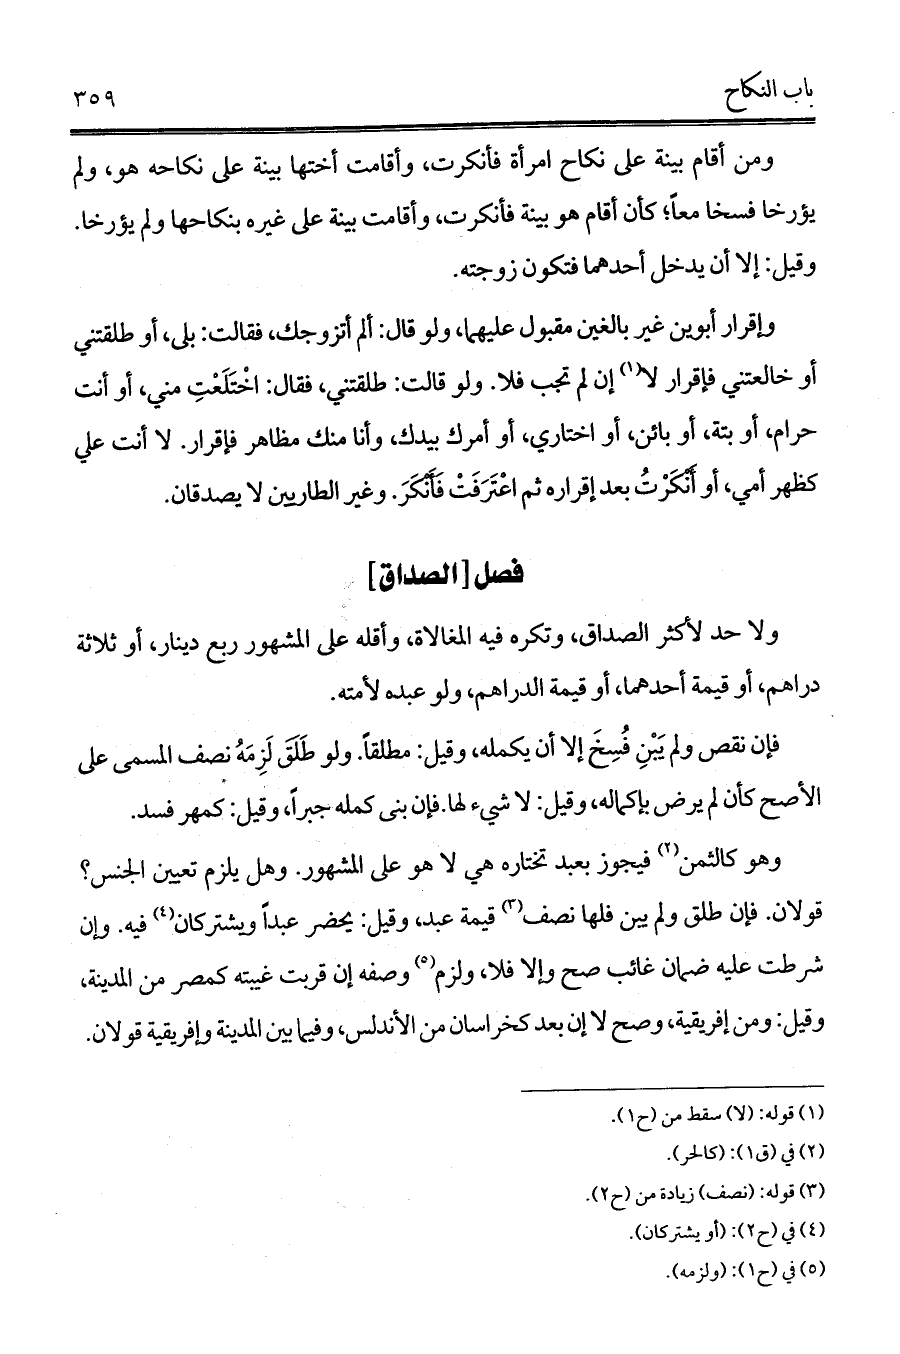 باب النكاح
٣٥٩
ومن أقام بينة على نكاح امرأة فأنكرت، وأقامت أختها بينة على نكاحه هو، ولم
يؤرخا فسخا معاً؛ كأن أقام هو بينة فأنكرت، وأقامت بينة على غيره بنكاحها ولم يؤرخا.
وقيل: إلا أن يدخل أحدهما فتكون زوجته.
وإقرار أبوين غير بالغين مقبول عليهما، ولو قال: ألم أتزوجك، فقالت: بلى، أو طلقتني
أو خالعتني فإقرار لا(١) إن لم تجب فلا. ولو قالت: طلقتني، فقال: اخْتَلَعْتِ مني، أو أنت
حرام، أو بتة، أو بائن، أو اختاري، أو أمرك بيدك، وأنا منك مظاهر فإقرار. لا أنت علي
كظهر أمي، أو أَنْكَرْتُ بعد إقراره ثم اعْتَرَفَتْ فَأَنْكَرَ. وغير الطاريين لا يصدقان.
فصل [الصداق]
ولا حد لأكثر الصداق، وتكره فيه المغالاة، وأقله على المشهور ربع دينار، أو ثلاثة
دراهم، أو قيمة أحدهما، أو قيمة الدراهم، ولو عبده لأمته.
فإن نقص ولم يَبْنِ فُسِخَ إلا أن يكمله، وقيل: مطلقاً. ولو طَلَقَ لَزِمَهُ نصف المسمى على
الأصح كأن لم يرض بإكماله، وقيل: لا شيء لها.فإن بنى كمله جبراً، وقيل: كمهر فسد.
وهو كالثمن(٢) فيجوز بعبد تختاره هي لا هو على المشهور. وهل يلزم تعيين الجنس؟
قولان. فإن طلق ولم يبن فلها نصف(٣) قيمة عبد، وقيل: يحضر عبداً ويشتركان(٤) فيه. وإن
شرطت عليه ضمان غائب صح وإلا فلا، ولزم(٥) وصفه إن قربت غيبته كمصر من المدينة،
وقيل: ومن إفريقية، وصح لا إن بعد كخراسان من الأندلس، وفيما بين المدينة وإفريقية قولان.
(١) قوله: (لا) سقط من (ح١).
(٢) في (ق١): (كالحر).
(٣) قوله: (نصف) زيادة من (ح٢).
(٤) في (ح٢): (أو يشتركان).
(٥) في (ح١): (ولزمه).